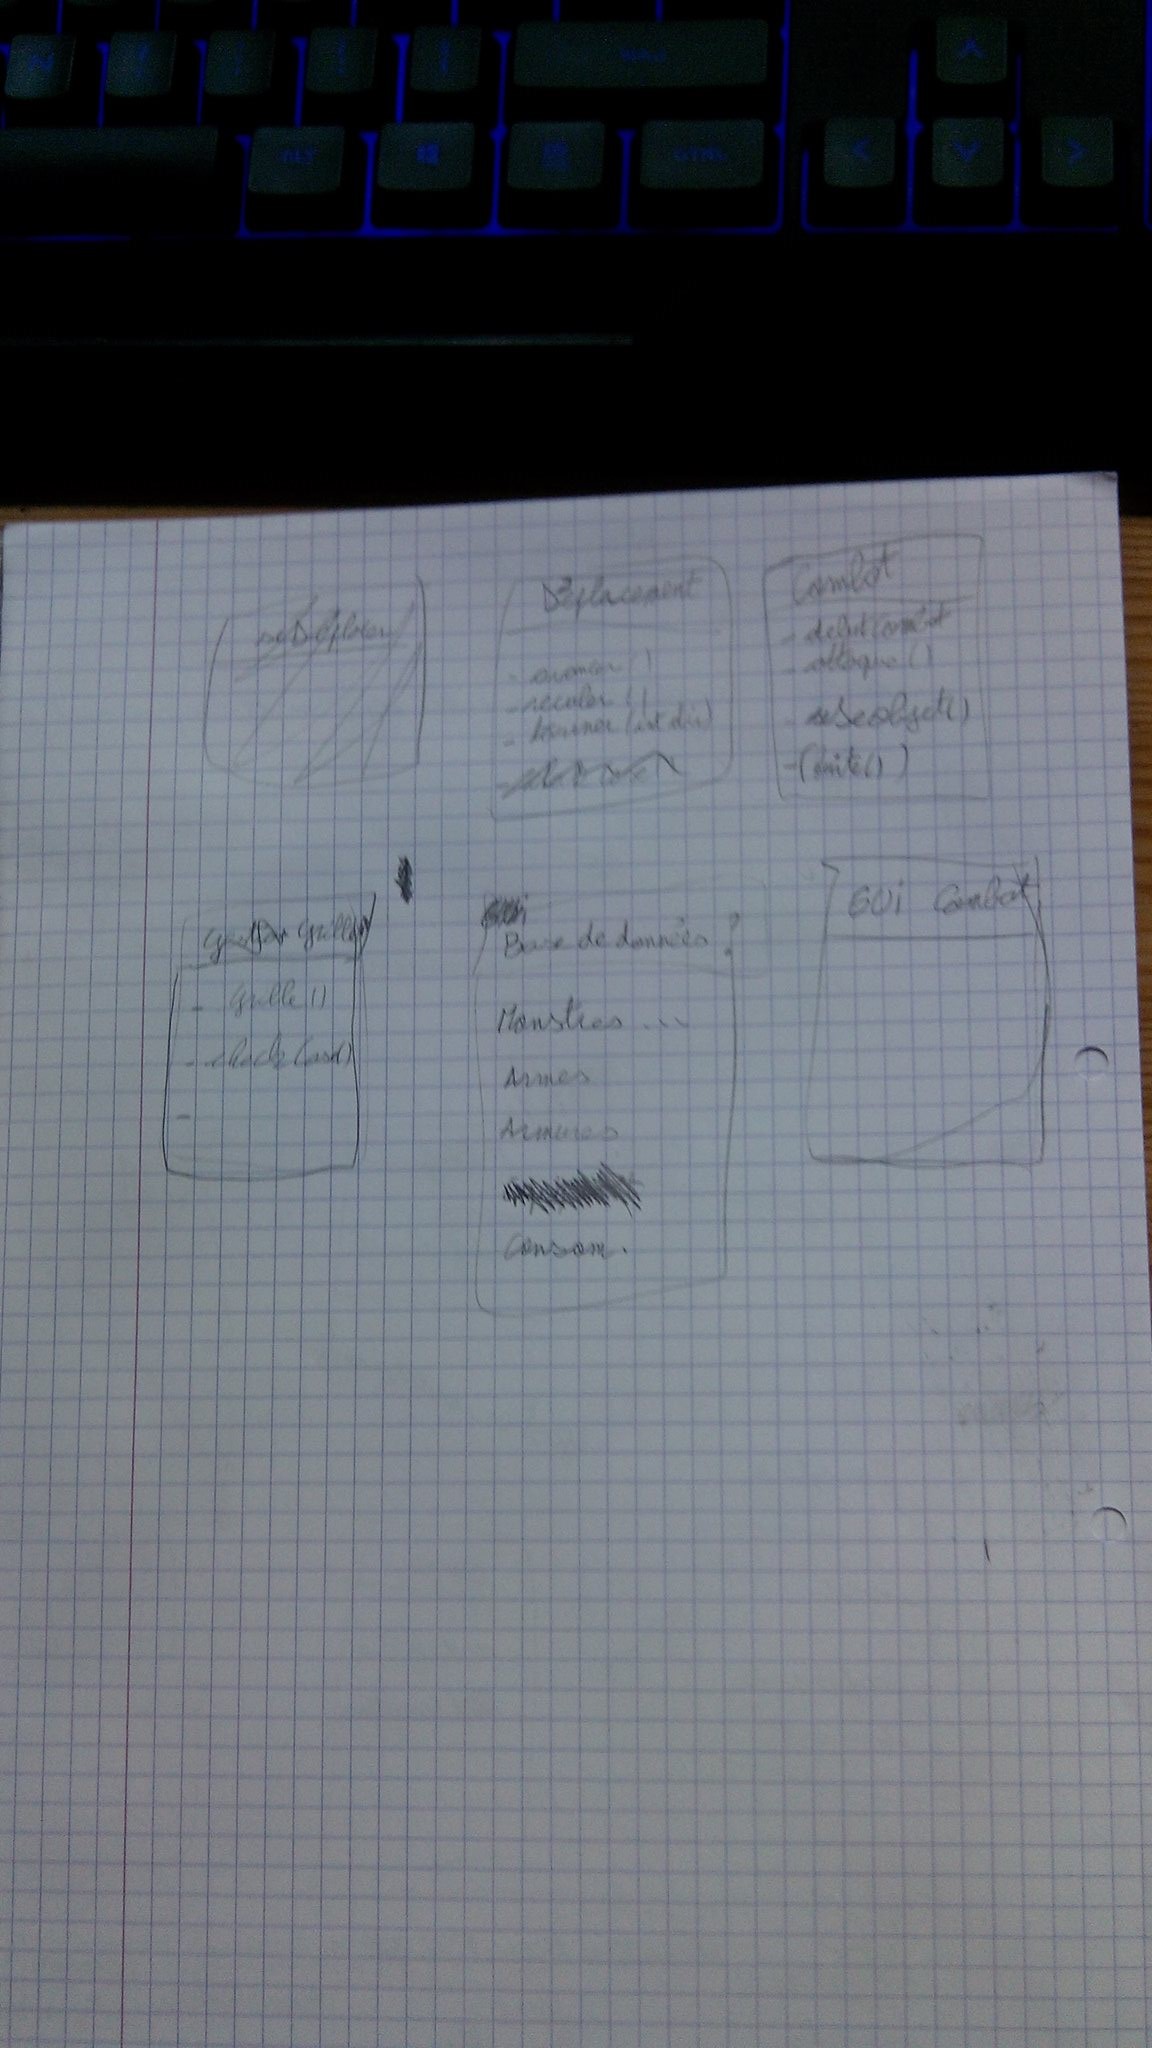 ALT
CTRL
Déplacement
- avancer()
- reculer()
- tourner(int dir)
Combat
- debutcombat
- attaque()
- useobjet()
- (fuite())
- Grille()
- checkCase()
Base de données ?
Monstres ...
Armes
Armures
Consom.
GUi Combat